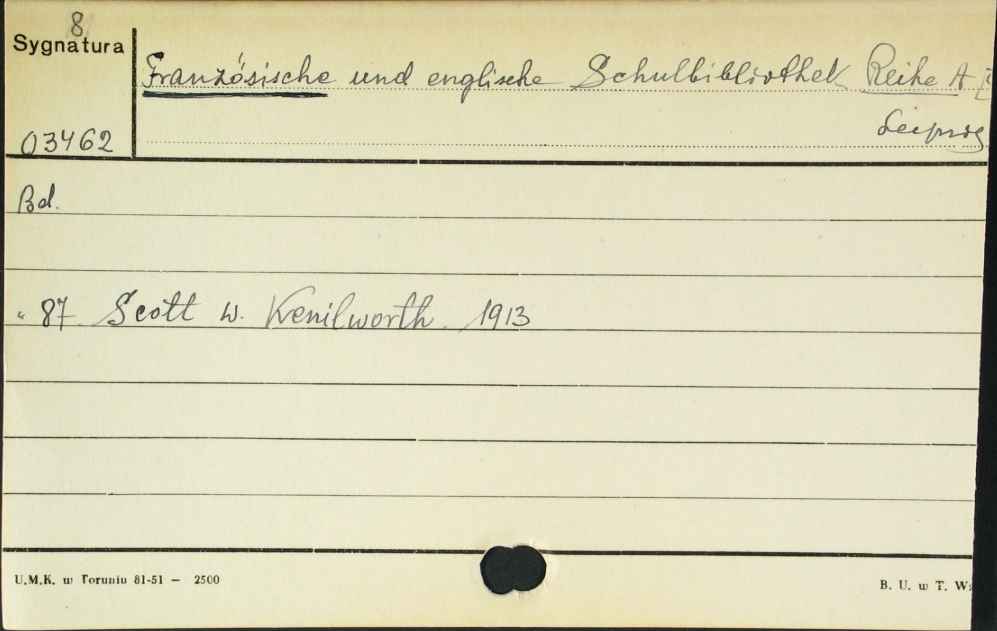 8
Sygnatura
Französische und englische Schulbibliothek Reihe A
Leipzig
03462
Bd.
" 87 Scott W. Kenilworth 1913
U.M.K. w Toruniu 81-51 — 2500
B. U. w T. W